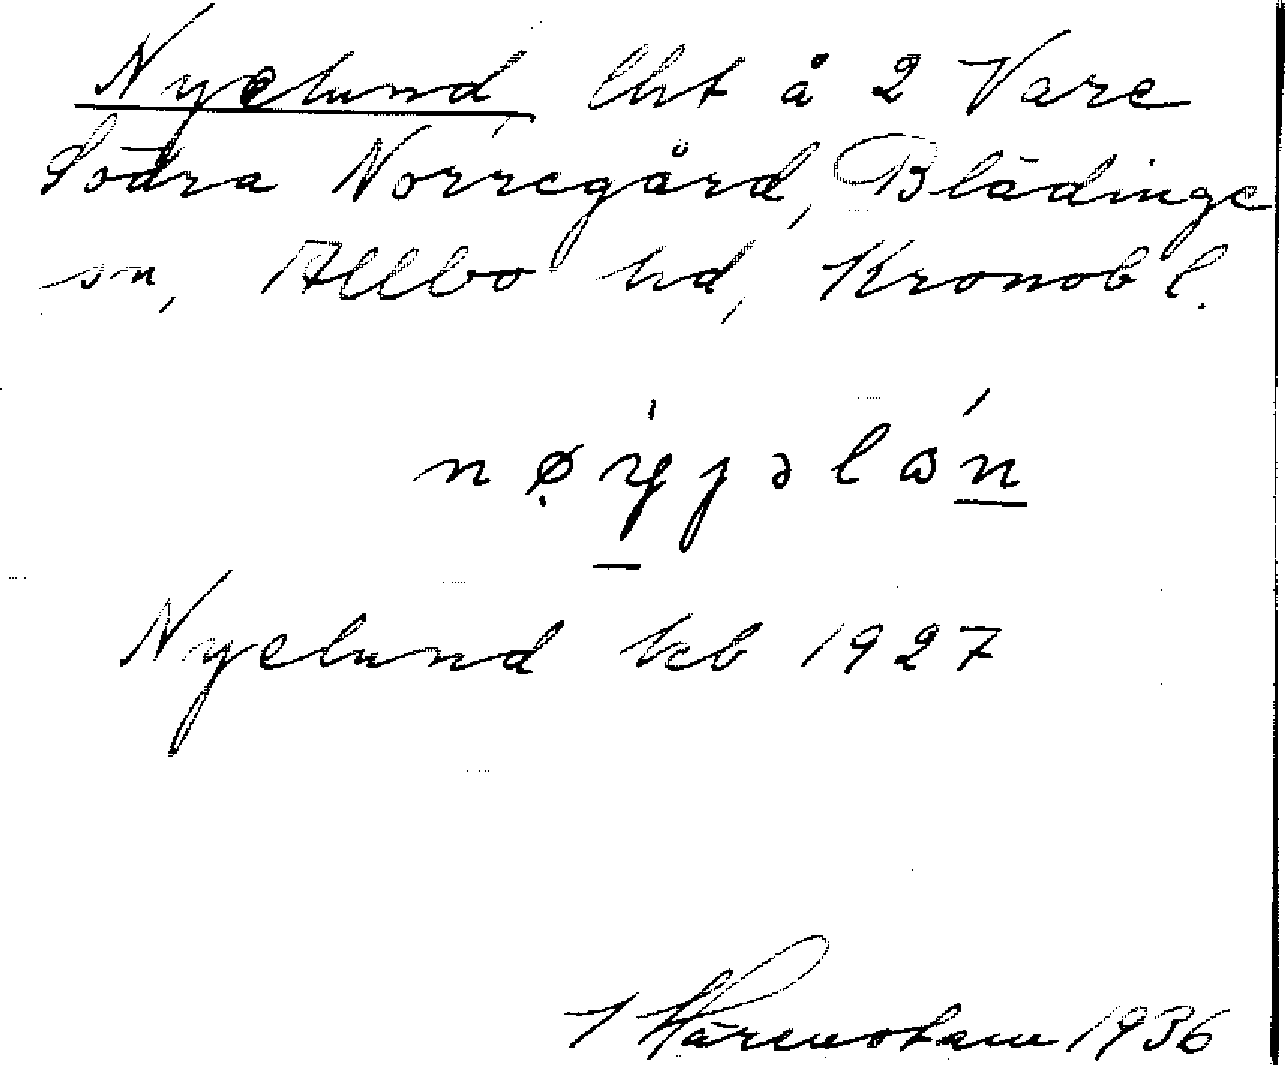 Nyelund, lht å 2 Vare
Södra Norregård, Blädinge
sn, Allbo hd, Kronob l.
Nyelund kb 1927
1936